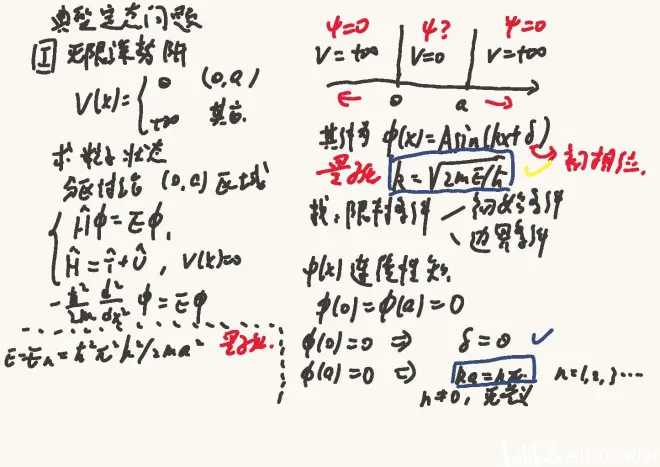 典型定态问题
I 无限深势阱
V(x)= { 0 (0,a)
+∞ 其它.
求粒子状态
分区讨论 (0,a)区域
Ĥφ=Eφ,
Ĥ=T̂+Û, V(x)=0
-ħ²/2m d²/dx² φ=Eφ
E=Eₙ=ħ²π²n²/2ma² 量子化.
ψ=0 ψ? ψ=0
V=+∞ V=0 V=+∞
0 a
其解为 φ(x)=Asin(kx+δ)
初相位.
量子化 k=√2mE/ħ
找:限制条件 初始条件
边界条件
φ(x)连续性知.
φ(0)=φ(a)=0
φ(0)=0 ⇒ δ=0
φ(a)=0 ⇒ ka=nπ. n=1,2,3…
n≠0, 无意义